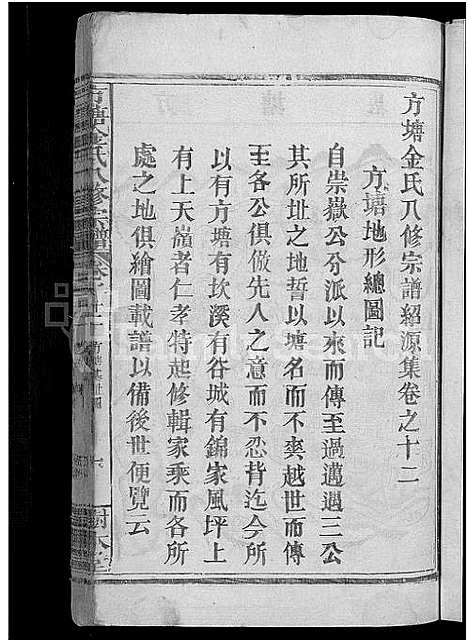 方塘金氏八修宗譜紹源集卷之十二
方塘地形總圖記
自崇嶽公分派以來而傳至過邁遇三公
其所址之地誓以塘名而不爽越世而傳
至各公俱倣先人之意而不忍背迄今所
以有方塘有坎溪有谷城有錦家風坪上
有上天嶺者仁孝特起修輯家乘而各所
處之地俱繪圖載譜以備後世便覽云
方塘金氏八修宗譜